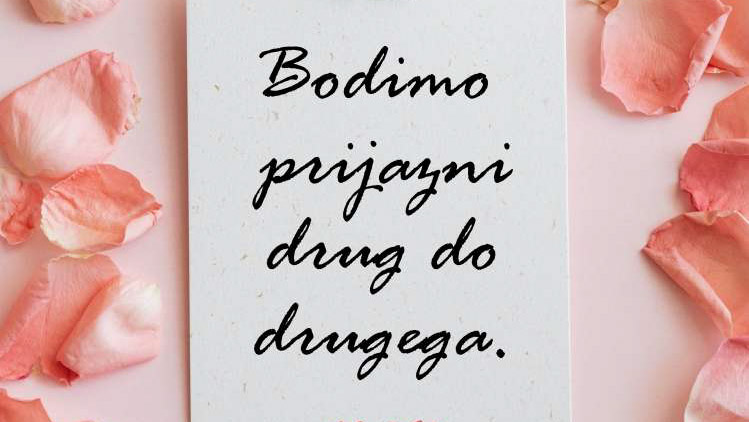 Bodimo
prijazni
drug do
drugega.